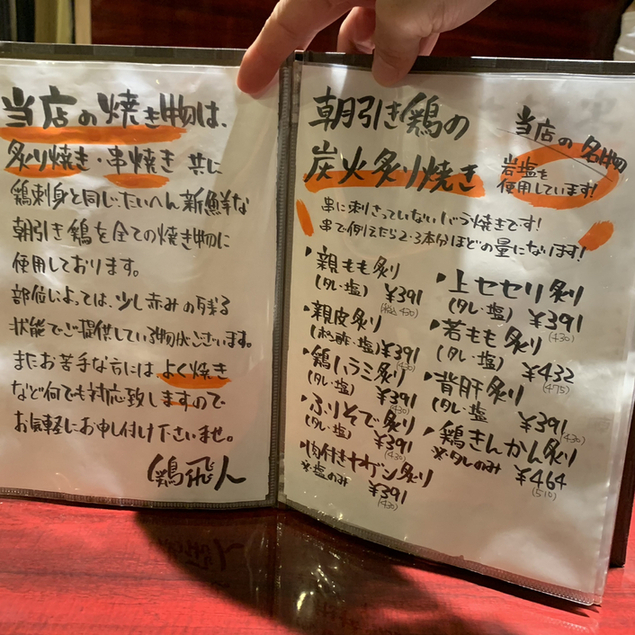 当店の焼き物は、
炙り焼き・串焼き 共に
鶏刺身と同じ、たいへん新鮮な
朝引き鶏を全ての焼き物に
使用しております。
部位によっては、少し赤みの残る
状態でご提供している物がございます。
またお苦手な方には よく焼き
など何でも対応致しますので
お気軽にお申し付け下さいませ。
鶏飛人
朝引き鶏の
炭火炙り焼き
当店の名物
岩塩を
使用しています!
串に刺さっていないバラ焼きです!
串で例えたら2・3本分ほどの量になります!
親もも炙り
(タレ・塩) ¥391
(税込430)
親皮炙り
(ポン酢・塩) ¥391
(430)
鶏ハラミ炙り
(タレ・塩) ¥391
(430)
ふりそで炙り
(タレ・塩) ¥391
(430)
肉付きヤゲン炙り
※塩のみ ¥391
(430)
上セセリ炙り
(タレ・塩) ¥391
(430)
若もも炙り
(タレ・塩) ¥432
(475)
背肝炙り
(タレ・塩) ¥391
(430)
鶏きんかん炙り
※タレのみ ¥464
(510)